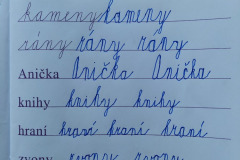 kameny kameny
rány rány rány
Anička Anička Anička
knihy knihy knihy
hraní hraní hraní hraní
zvony zvony zvony